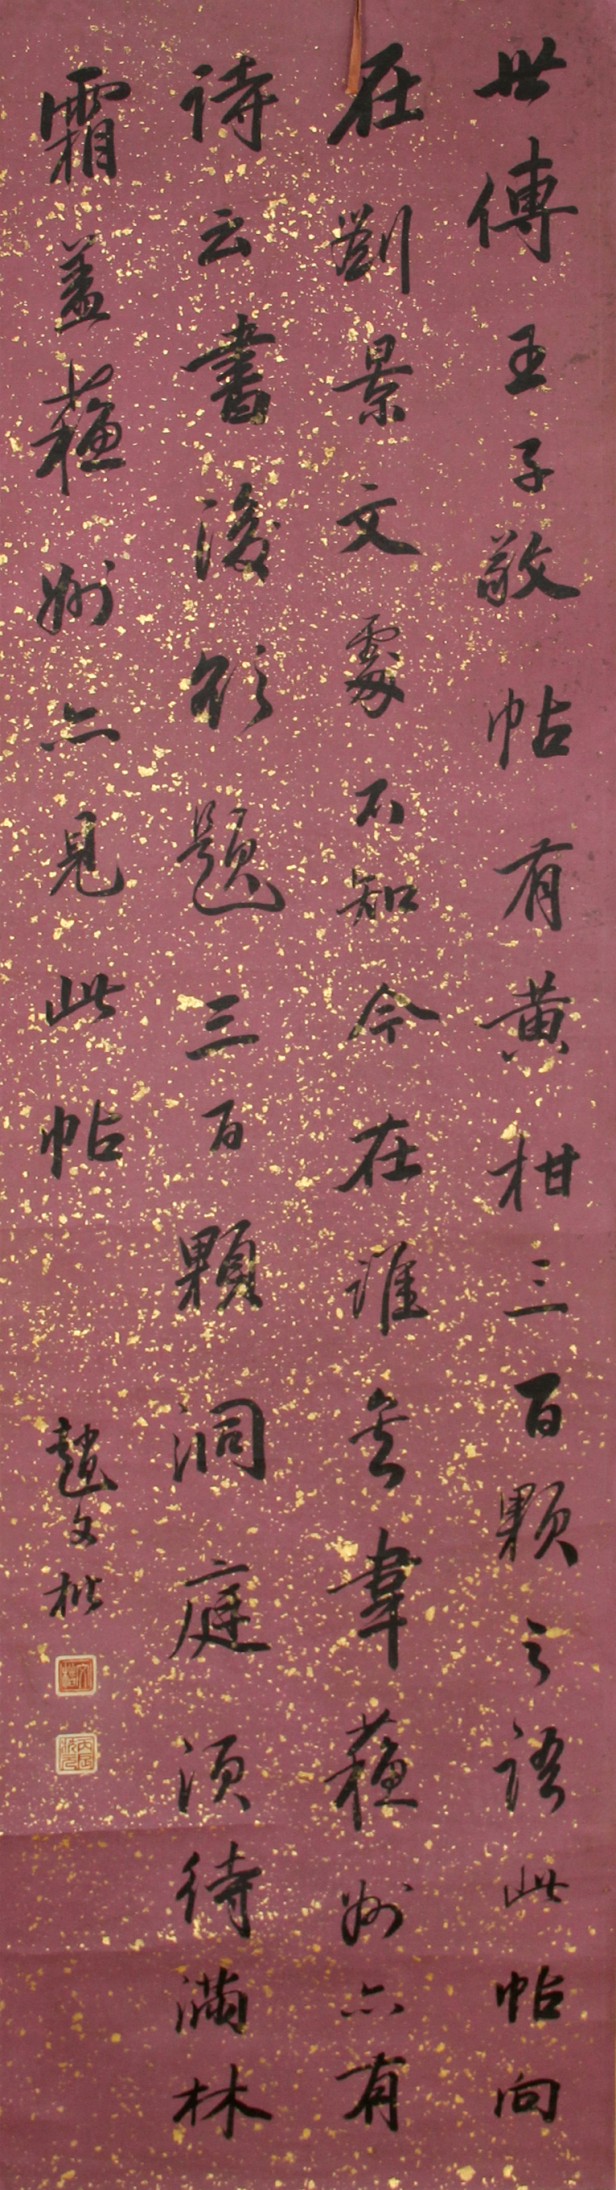 世傳王子敬帖有黃柑三百顆之語此帖向
在劉景文處不知今在誰矣韋蘇州亦有
詩云書後欲題三百顆洞庭須待滿林
霜蓋蘇州亦見此帖
趙文楷